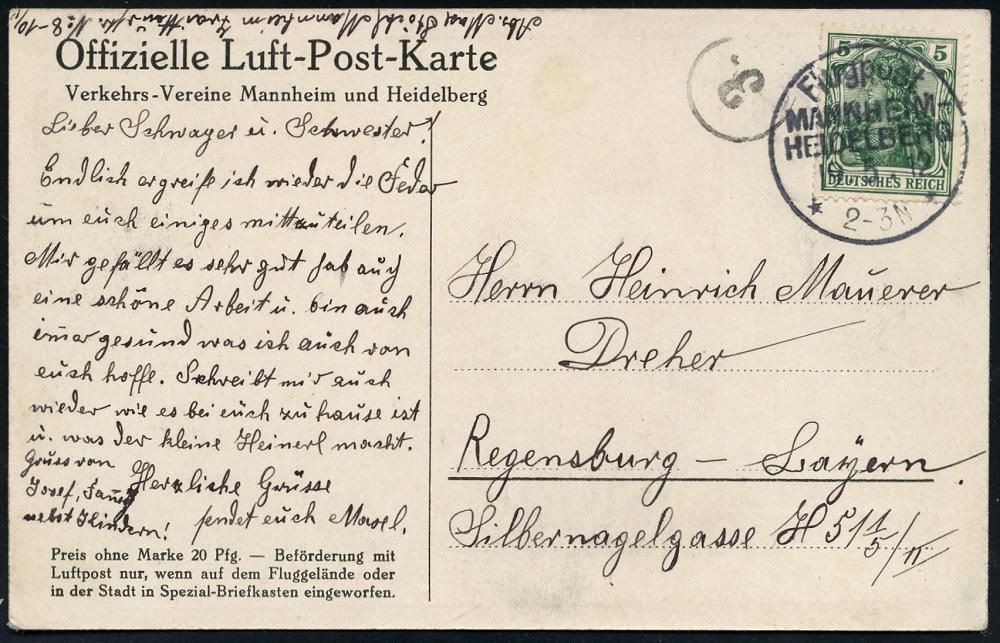 Abs. Max Stoib Mannheim
Offizielle Luft-Post-Karte
Verkehrs-Vereine Mannheim und Heidelberg
Lieber Schwager u. Schwester!
Endlich ergreife ich wieder die Feder
um euch einiges mitzuteilen.
Mir gefällt es sehr gut hab auch
eine schöne Arbeit u. bin auch
immer gesund was ich auch von
euch hoffe. Schreibt mir auch
wieder wie es bei euch zu hause ist
u. was der kleine Heinerl macht.
Gruss von
Josef, Fanny
nebst Kindern!
Herzliche Grüsse
sendet euch
Preis ohne Marke 20 Pfg. — Beförderung mit
Luftpost nur, wenn auf dem Fluggelände oder
in der Stadt in Spezial-Briefkasten eingeworfen.
3.
5 5
DEUTSCHES REICH
Flugpost
MANNHEIM-
HEIDELBERG
19.5.12
2-3N
Herrn Heinrich Mauerer
Dreher
Regensburg — Bayern.
Silbernagelgasse H 51 1/5/II